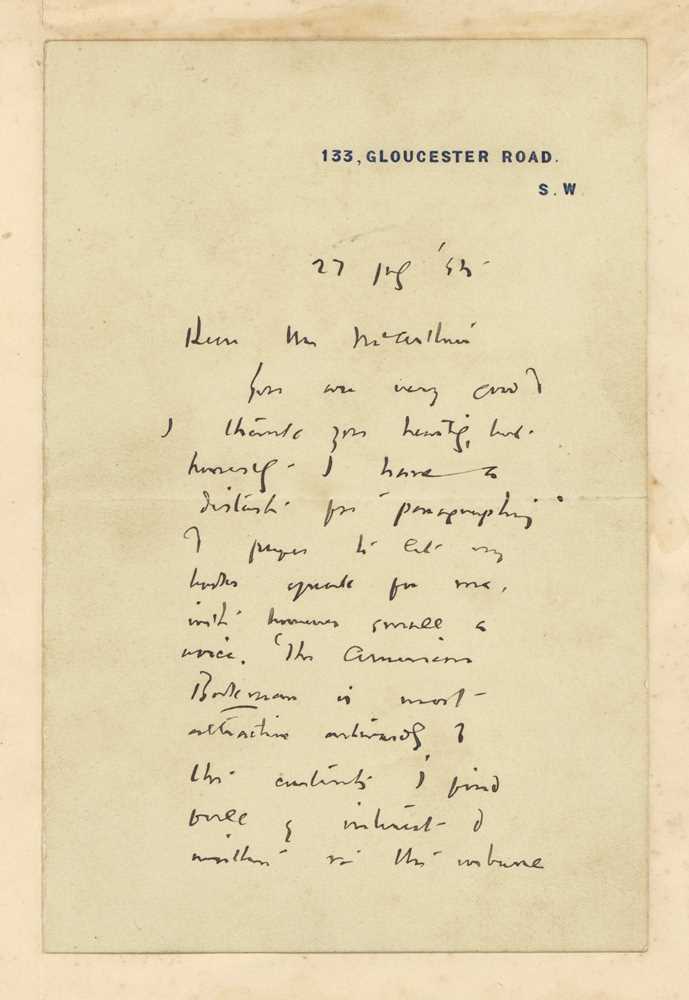 133, GLOUCESTER ROAD.
S. W
27 '85
Dear Mr McArthur
You are very good &
I thank you heartily, but
honestly I have a
distaste for "paragraphing"
& prefer to let my
books speak for me,
with however small a
voice. 'The American
Bookman is most
attractive outwardly &
the contents I find
full of interest &
written in the